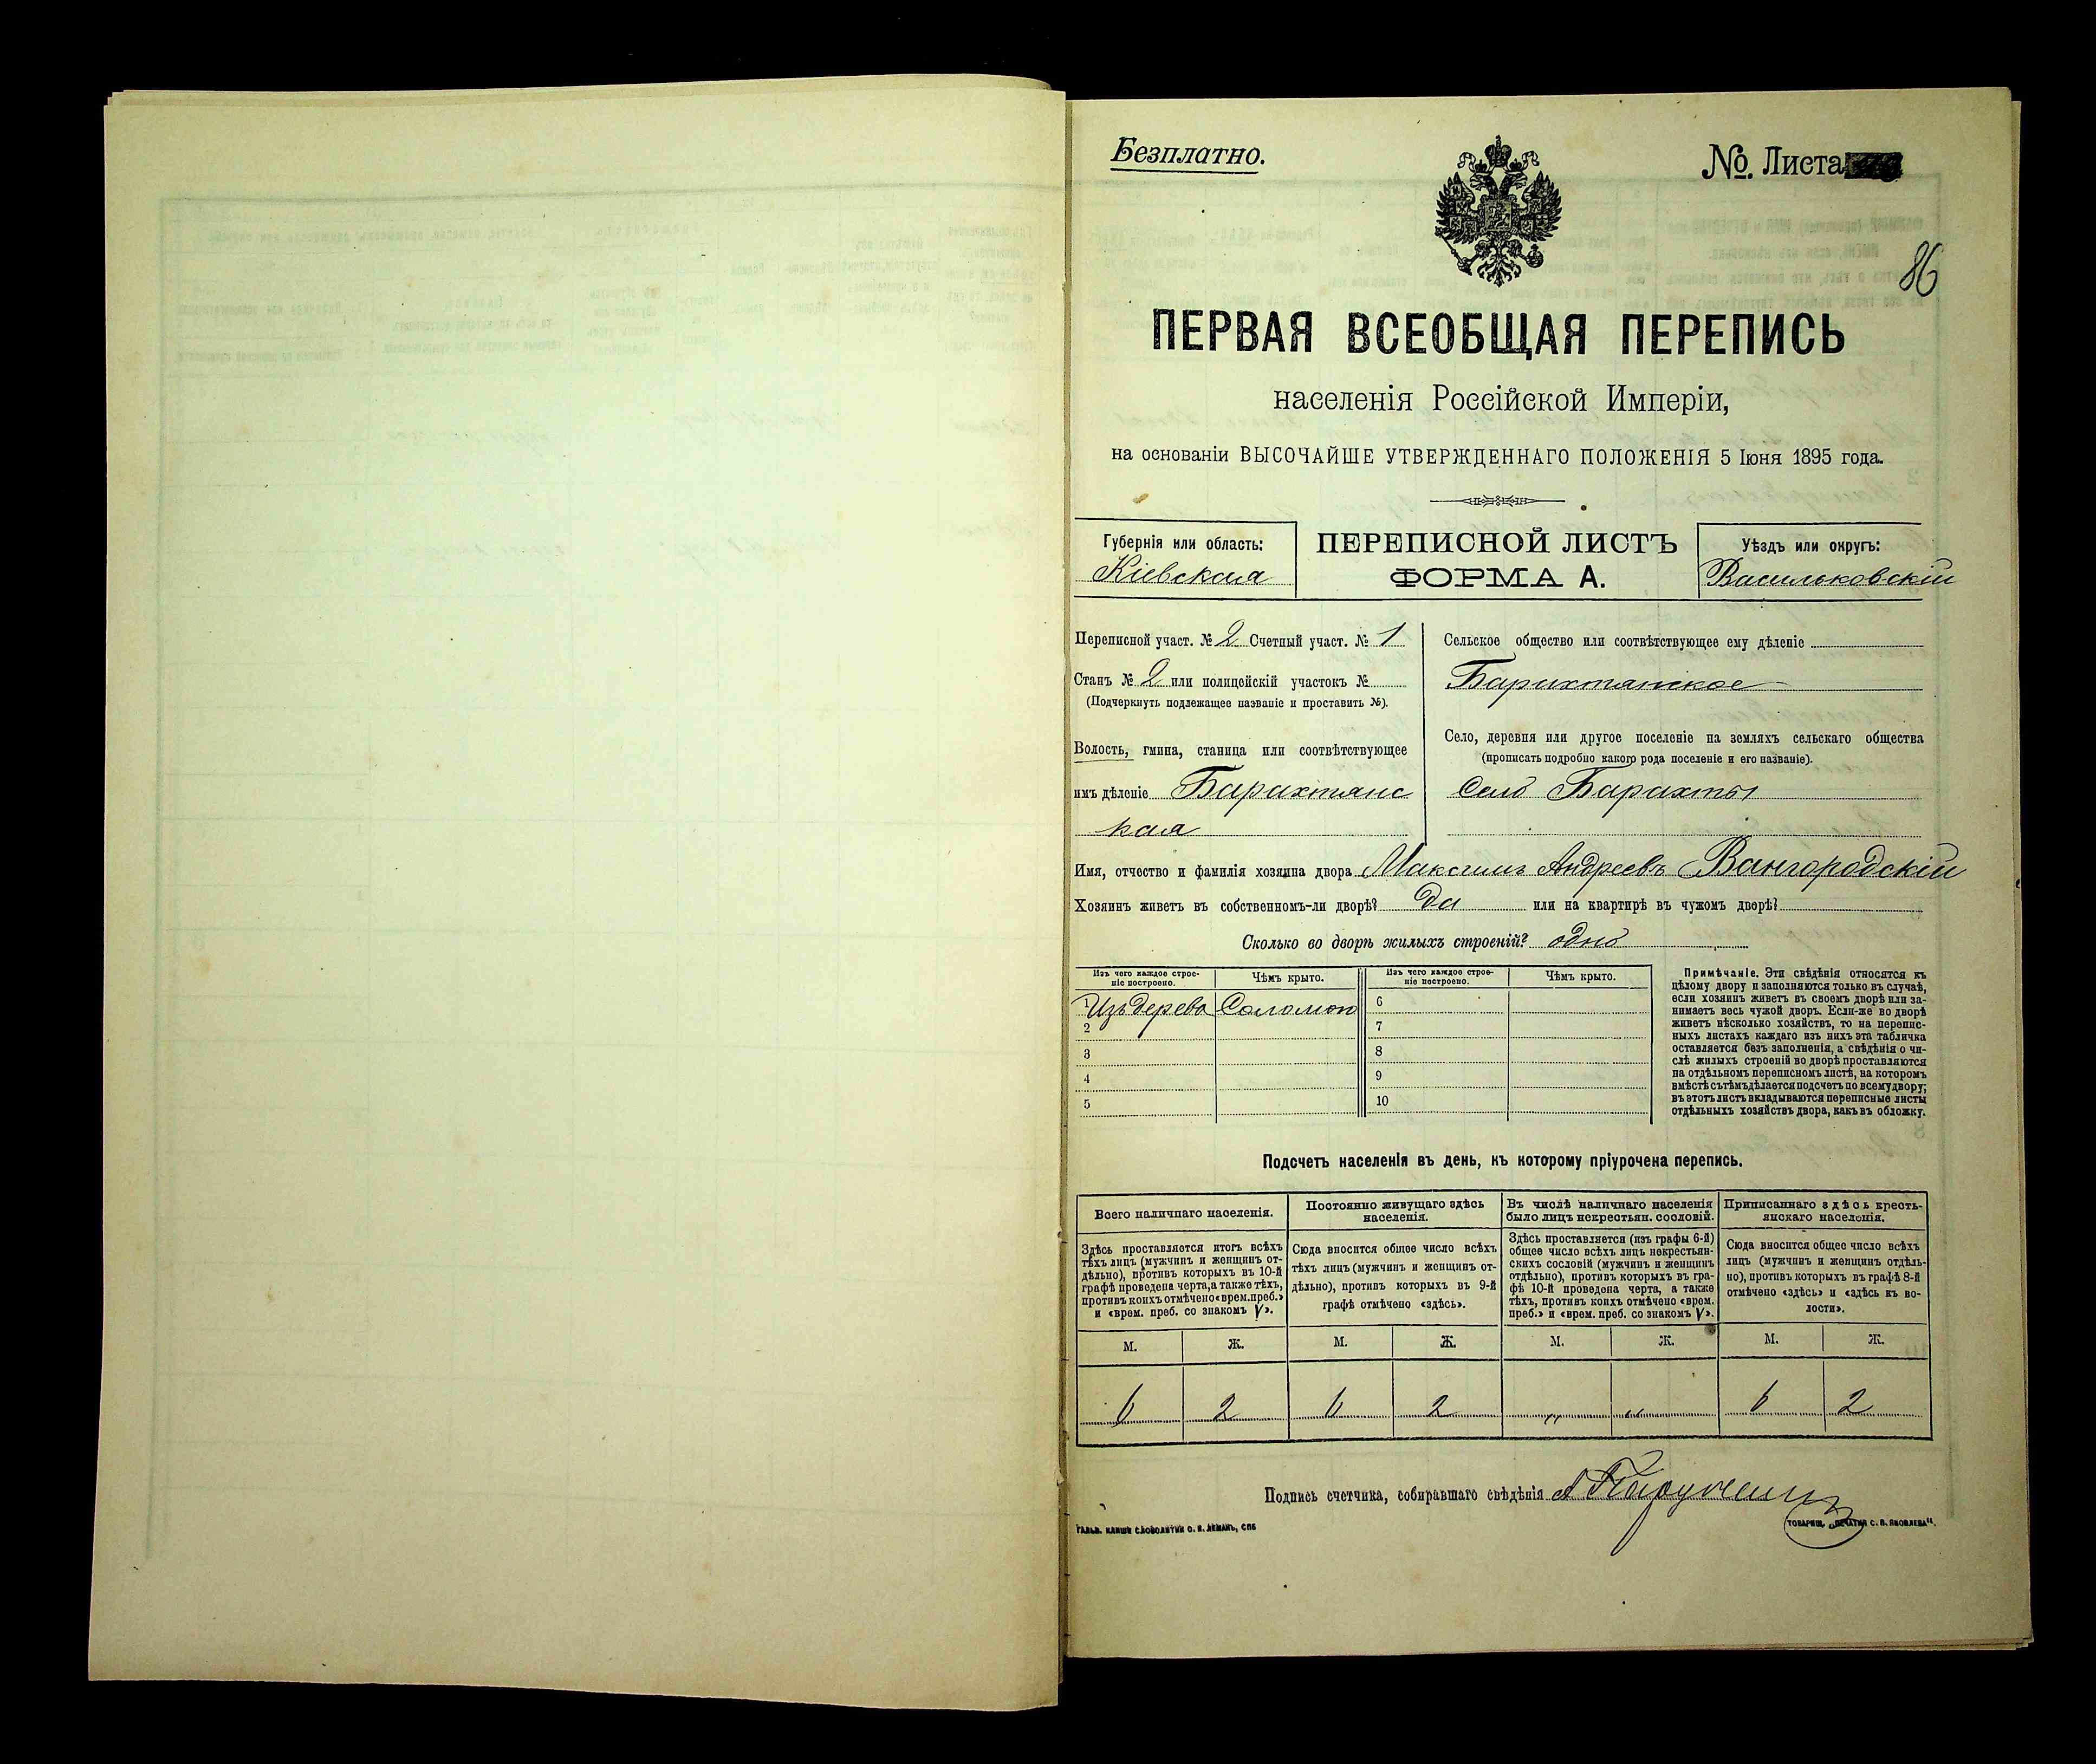 Безплатно.
№. Листа
86
ПЕРВАЯ ВСЕОБЩАЯ ПЕРЕПИСЬ
населенія Россійской Имперіи,
на основаніи ВЫСОЧАЙШЕ УТВЕРЖДЕННАГО ПОЛОЖЕНІЯ 5 Іюня 1895 года.
Губернія или область:
Кіевская
ПЕРЕПИСНОЙ ЛИСТЪ
ФОРМА А.
Уѣздъ или округъ:
Васильковскій
Переписной участ. № 2 Счетный участ. № 1
Станъ № 2 или полицейскій участокъ №
(Подчеркнуть подлежащее названіе и проставить №).
Волость, гмина, станица или соотвѣтствующее
имъ дѣленіе Барахтянс
кая
Сельское общество или соотвѣтствующее ему дѣленіе
Барахтянское
Село, деревня или другое поселеніе на земляхъ сельскаго общества
(прописать подробно какого рода поселеніе и его названіе).
Село Барахты
Имя, отчество и фамилія хозяина двора Максимъ Андреевъ Вангородскій
Хозяинъ живетъ въ собственномъ-ли дворѣ? Да или на квартирѣ въ чужомъ дворѣ?
Сколько во дворѣ жилыхъ строеній? одно
Изъ чего каждое строе-
ніе построено.
Чѣмъ крыто.
Изъ чего каждое строе-
ніе построено.
Чѣмъ крыто.
1 Изъ дерева Соломой 6
2 7
3 8
4 9
5 10
Примѣчаніе. Эти свѣдѣнія относятся къ
цѣлому двору и заполняются только въ случаѣ,
если хозяинъ живетъ въ своемъ дворѣ или за-
нимаетъ весь чужой дворъ. Если-же во дворѣ
живетъ нѣсколько хозяйствъ, то на перепис-
ныхъ листахъ каждаго изъ нихъ эта табличка
оставляется безъ заполненія, а свѣдѣнія о чи-
слѣ жилыхъ строеній во дворѣ проставляются
на отдѣльномъ переписномъ листѣ, на которомъ
вмѣстѣ съ тѣмъ дѣлается подсчетъ по всему двору;
въ этотъ листъ вкладываются переписные листы
отдѣльныхъ хозяйствъ двора, какъ въ обложку.
Подсчетъ населенія въ день, къ которому пріурочена перепись.
Всего наличнаго населенія.
Здѣсь проставляется итогъ всѣхъ
тѣхъ лицъ (мужчинъ и женщинъ от-
дѣльно), противъ которыхъ въ 10-й
графѣ проведена черта, а также тѣхъ,
противъ коихъ отмѣчено «врем. преб.»
и «врем. преб. со знакомъ V».
Постоянно живущаго здѣсь
населенія.
Сюда вносится общее число всѣхъ
тѣхъ лицъ (мужчинъ и женщинъ от-
дѣльно), противъ которыхъ въ 9-й
графѣ отмѣчено «здѣсь».
Въ числѣ наличнаго населенія
было лицъ некрестьян. сословій.
Здѣсь проставляется (изъ графы 6-й)
общее число всѣхъ лицъ некрестьян-
скихъ сословій (мужчинъ и женщинъ
отдѣльно), противъ которыхъ въ гра-
фѣ 10-й проведена черта, а также
тѣхъ, противъ коихъ отмѣчено «врем.
преб.» и «врем. преб. со знакомъ V».
Приписаннаго здѣсь кресть-
янскаго населенія.
Сюда вносится общее число всѣхъ
лицъ (мужчинъ и женщинъ отдѣль-
но), противъ которыхъ въ графѣ 8-й
отмѣчено «здѣсь» и «здѣсь въ во-
лости».
М. Ж. М. Ж. М. Ж. М. Ж.
6 2 6 2 " " 6 2
Подпись счетчика, собиравшаго свѣдѣнія
ГАЛЬВ. КЛИШЕ СЛОВОЛИТНИ О. И. ЛЕМАНЪ, СПБ
ТОВАРИЩ. „ПЕЧАТНЯ С. П. ЯКОВЛЕВА“.